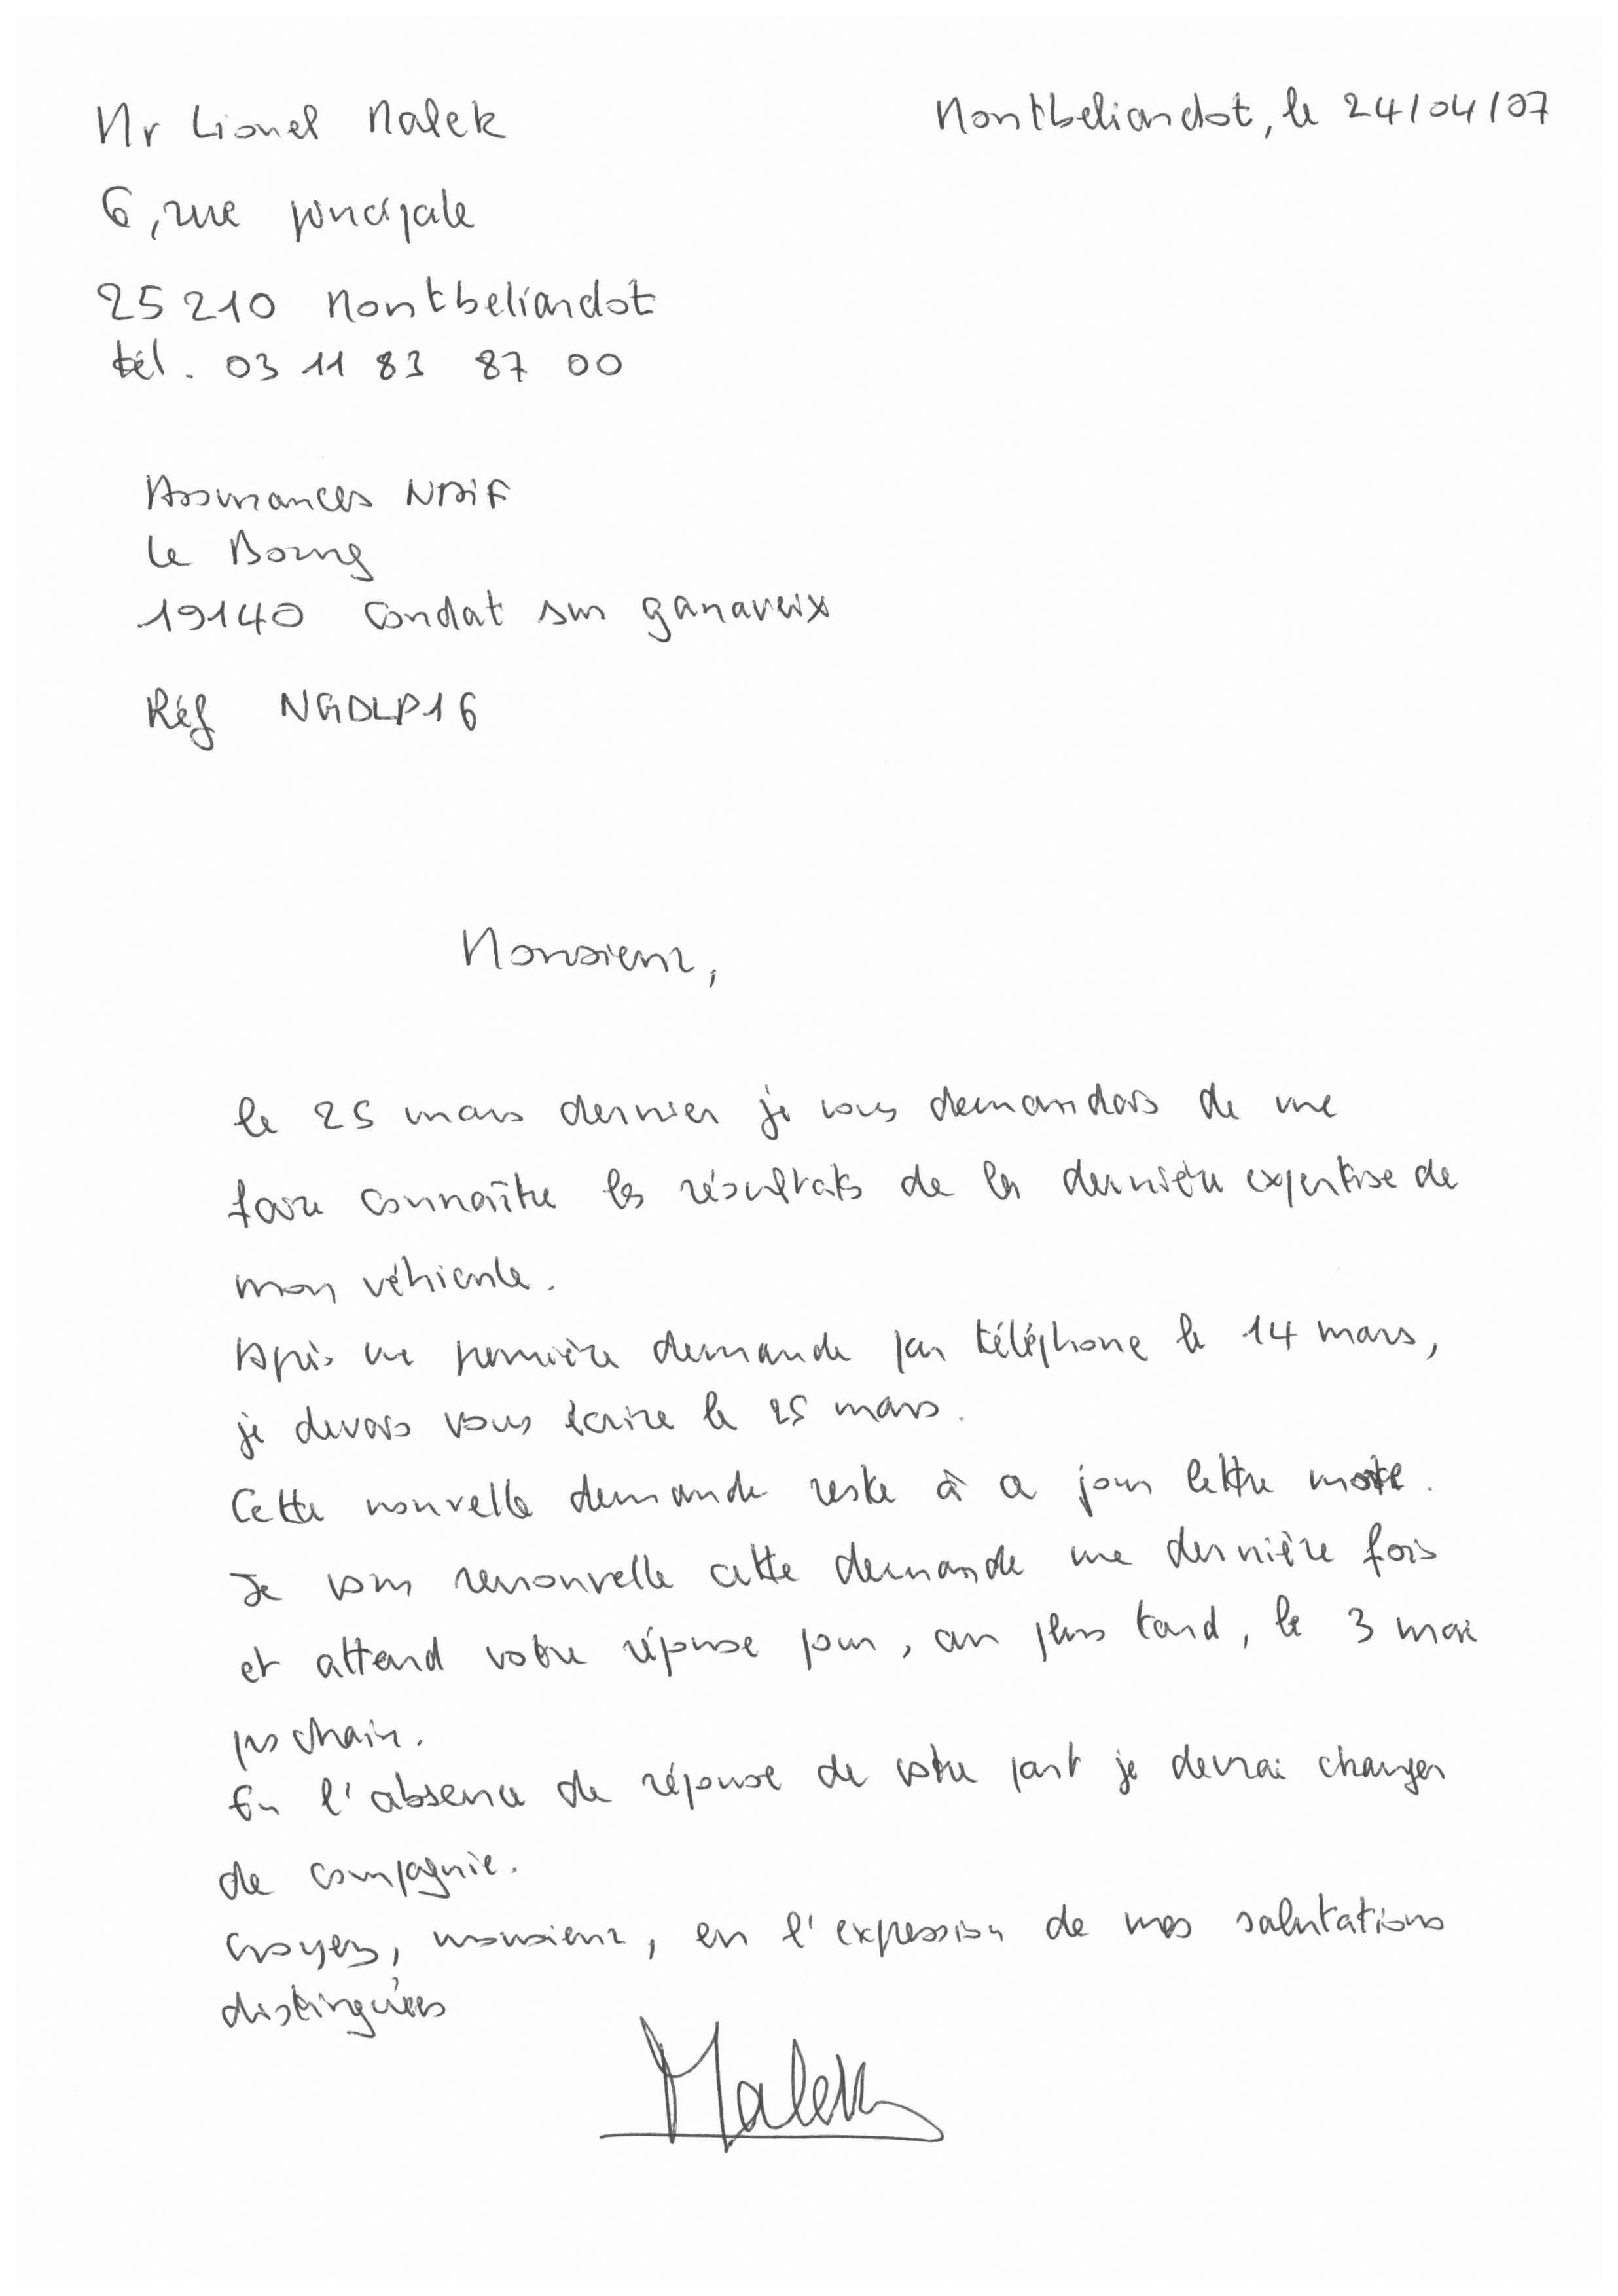 Mr Lionel Malek
Montbeliardot, le 24/04/07
6, rue principale
25210 Montbeliardot
tél. 03 11 83 87 00
Assurances MAiF
le Bourg
19140 Condat sur ganaveix
Réf NGDLP16
Monsieur,
le 25 mars dernier je vous demandais de me
faire connaître les résultats de la dernière expertise de
mon véhicule.
Après une première demande par téléphone le 14 mars,
je devais vous écrire le 25 mars.
Cette nouvelle demande reste à a jour lettre morte.
Je vous renouvelle cette demande une dernière fois
et attend votre réponse pour, au plus tard, le 3 mai
prochain.
En l'absence de réponse de votre part je devrai changer
de compagnie.
Croyez, monsieur, en l'expression de mes salutations
distinguées
Malek